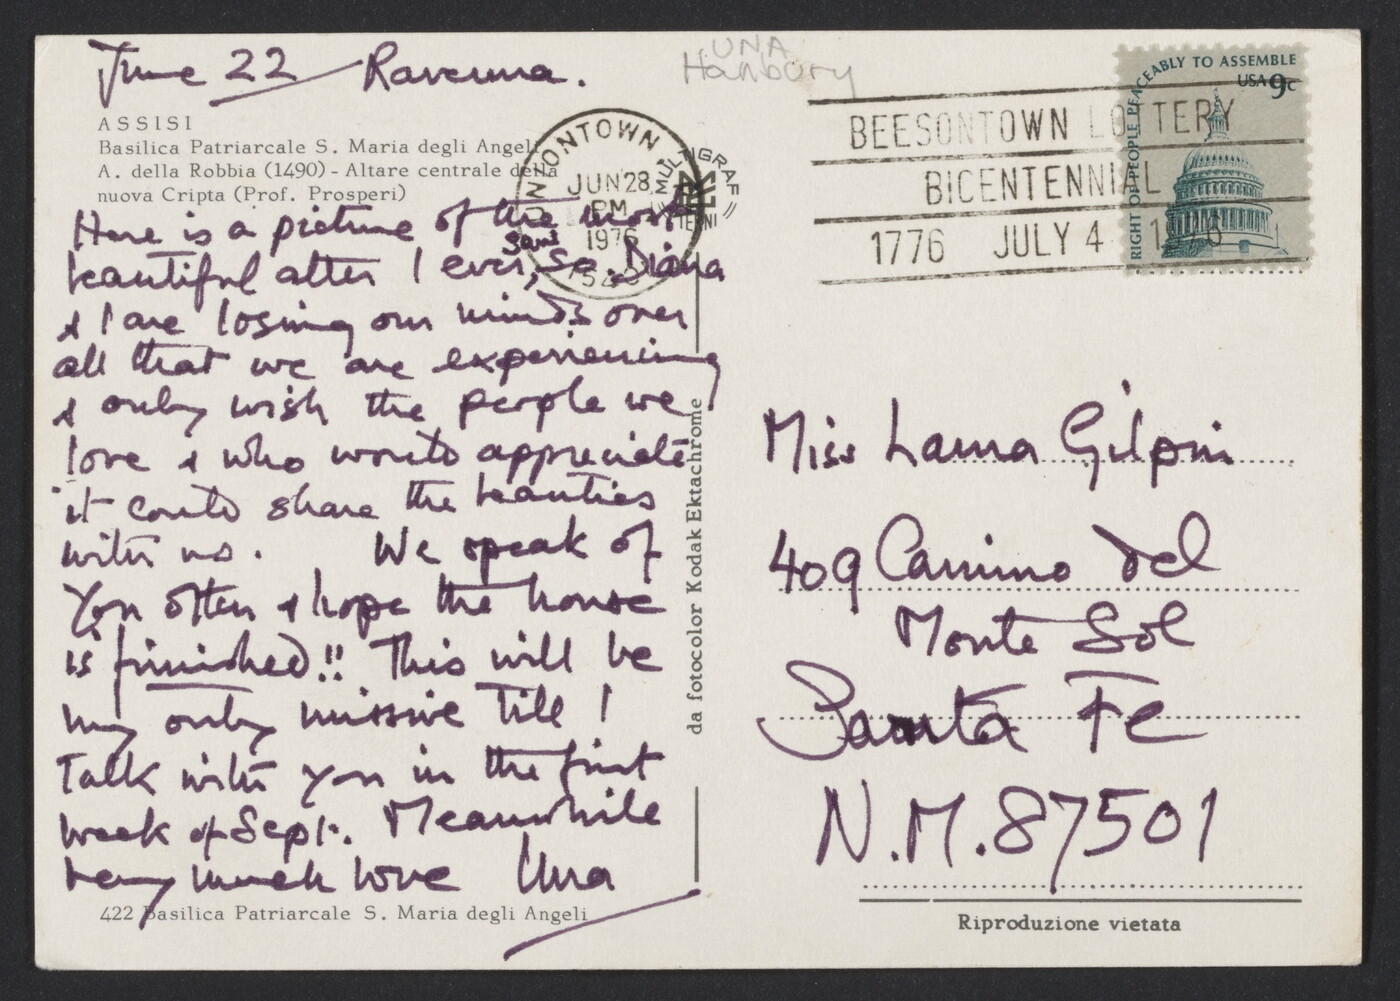 June 22 Ravenna.
UNA
Hanbury
ASSISI
Basilica Patriarcale S. Maria degli Angeli
A. della Robbia (1490) - Altare centrale della
nuova Cripta (Prof. Prosperi)
Here is a picture of the most
beautiful alter I ever saw, so Diana
& I are losing our minds over
all that we are experiencing
& only wish the people we
love & who would appreciate
it could share the beauties
with us. We speak of
you often & hope the house
is finished!! This will be
my only missive till I
talk with you in the first
week of Sept. Meanwhile
very much love Una
422 Basilica Patriarcale S. Maria degli Angeli
da fotocolor Kodak Ektachrome
UNIONTOWN
JUN 28
PM
1976
BEESONTOWN LOTTERY
BICENTENNIAL
1776 JULY 4 1976
RIGHT OF PEOPLE PEACEABLY TO ASSEMBLE
USA 9c
Miss Laura Gilpin
409 Camino del
Monte Sol
Santa Fe
N.M. 87501
Riproduzione vietata